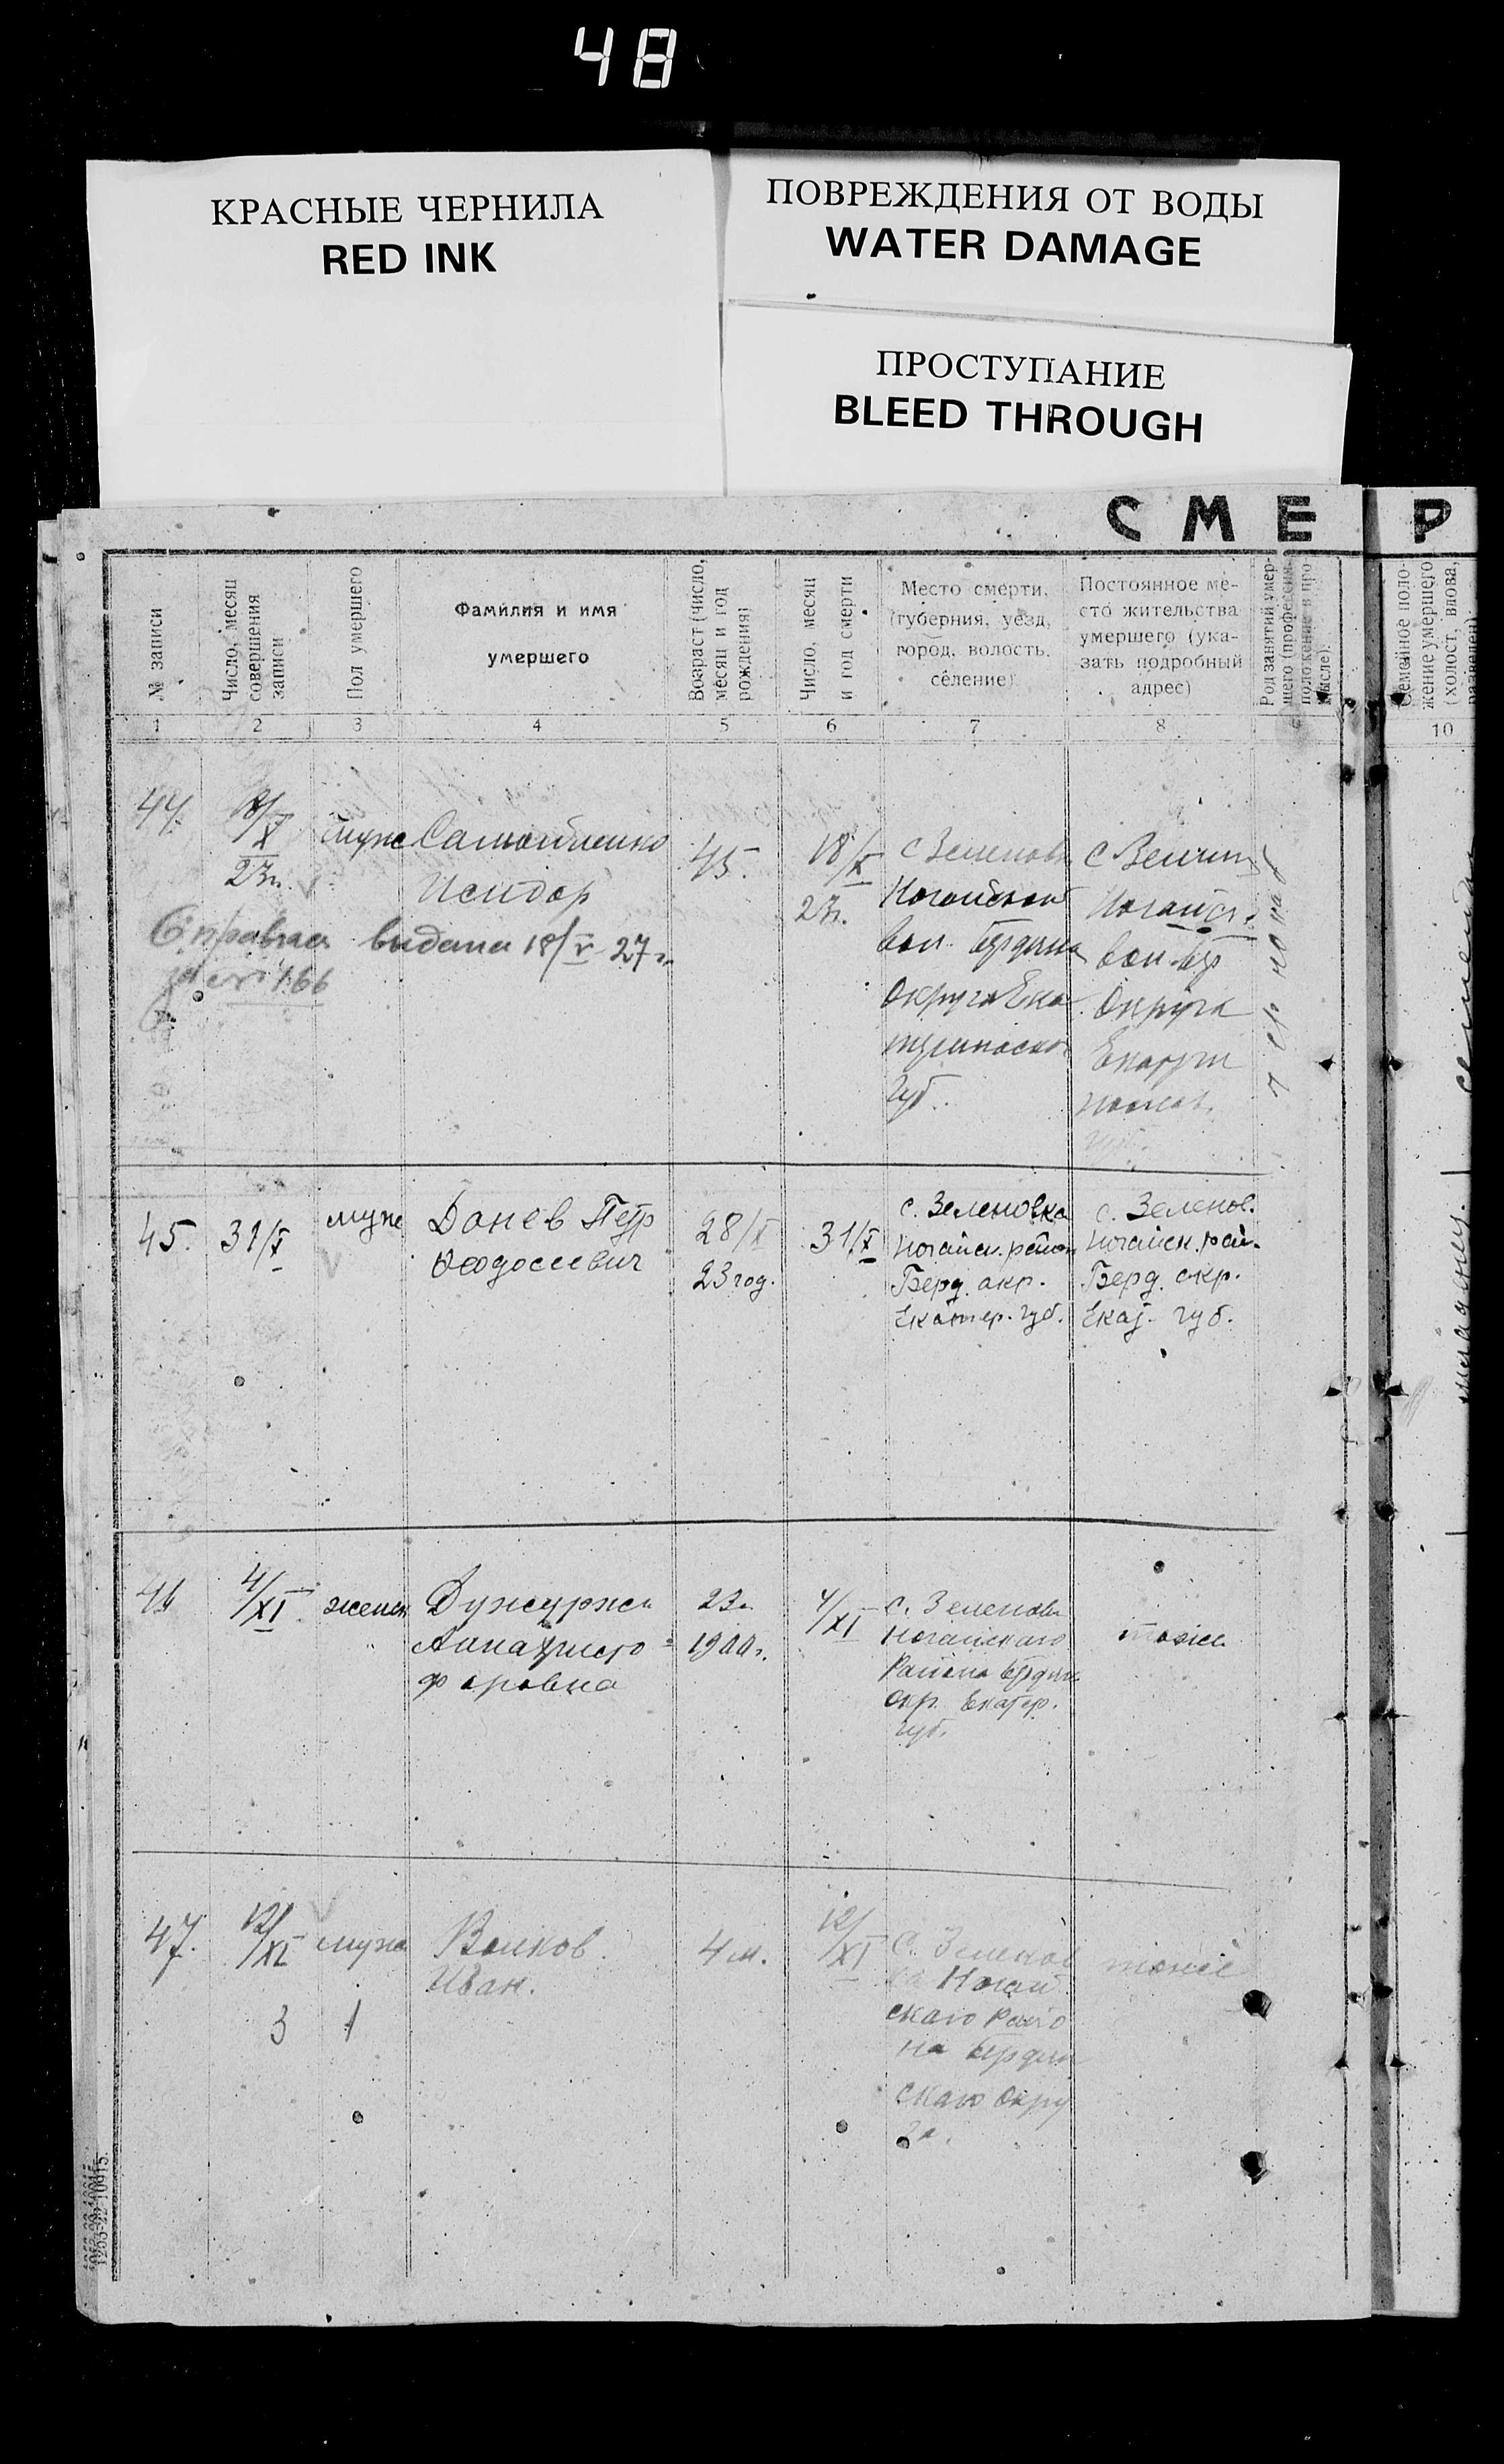 48
КРАСНЫЕ ЧЕРНИЛА
RED INK
ПОВРЕЖДЕНИЯ ОТ ВОДЫ
WATER DAMAGE
ПРОСТУПАНИЕ
BLEED THROUGH
СМЕ Р
№ записи
Число, месяц
совершения
записи
Пол умершего
Фамилия и имя
умершего
Возраст (число,
месяц и год
рождения)
Число, месяц
и год смерти
Место смерти,
(губерния, уезд,
город, волость,
селение)
Постоянное ме-
сто жительства
умершего (ука-
зать подробный
адрес)
Род занятий умер-
шего (професси
положение в про
мысле).
Семейное поло-
жение умершего
(холост, вдова,
разведен)
1 2 3 4 5 6 7 8 10
44
18/X
23г.
муж
Самойленко
Исидор
45.
18/X
23г.
с Зеленов
Ногайской
вол. Бердян
округа Ека
губ.
с
Ногайск.
вол.
Округа
Справка выдана 18/V-27г.
166
45. 31/X муж
Донев Петр
Феодосеевич
28/X
23 год.
31/X
с. Зеленовка
Ногайск. район
Берд. окр.
Екатер. губ.
с. Зеленов.
Ногайск. рай.
Берд. окр.
Екат. губ.
46
4/XI
женск
Анна Христо-
форовна
23г.
1900г.
4/XI
с. Зеленовк
Ногайскаго
Района Бердян
окр. Екатер.
губ.
тоже
47.
12/XI
муж
Волков
Иван.
4 м.
12/XI
с. Зеленов
ка Ногай
скаго Райо
на Бердян
скаго Окру
га.
тоже
3 1